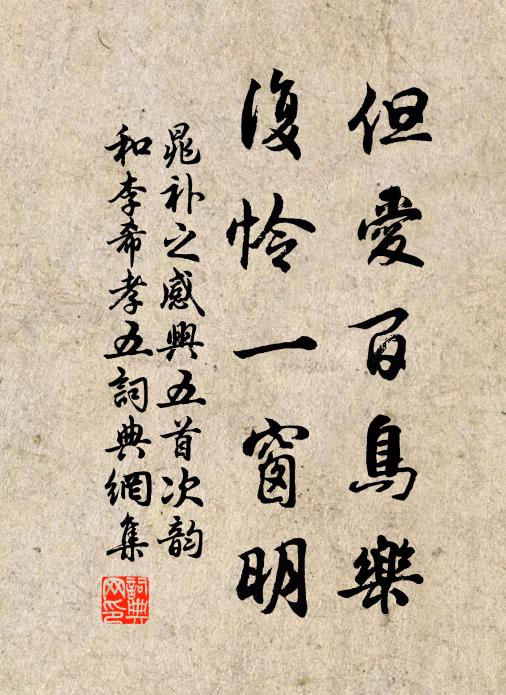 但愛百鳥樂
復怜一窗明
晁补之感興五首次韵
和李希孝五詞典網集
詞典网印